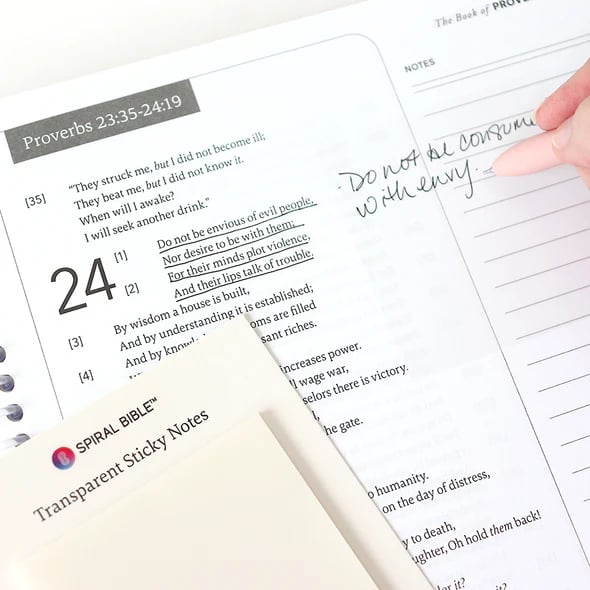 The Book of PROVE
NOTES
Proverbs 23:35-24:19
[35] "They struck me, but I did not become ill;
They beat me, but I did not know it.
When will I awake?
I will seek another drink."
24
[1] Do not be envious of evil people,
Nor desire to be with them;
[2] For their minds plot violence,
And their lips talk of trouble.
[3] By wisdom a house is built,
And by understanding it is established;
[4] And by knowl ooms are filled
sant riches.
increases power.
l wage war,
selors there is victory.
he gate.
o humanity.
on the day of distress,
y to death,
ughter, Oh hold them back!
er it?
it?
· Do not be consume
with envy.
SPIRAL BIBLE™
Transparent Sticky Notes